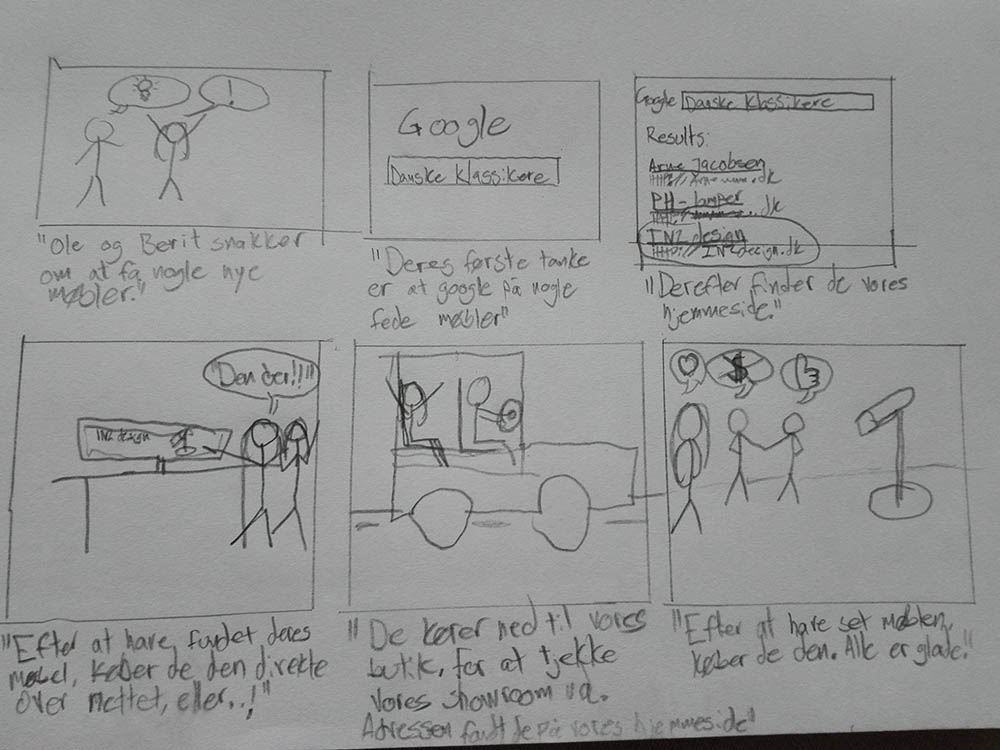 "Ole og Berit snakker
om at få nogle nye
møbler."
Google
Danske Klassikere
"Deres første tanke
er at google på nogle
fede møbler"
Google Danske Klassikere
Results:
Arne Jacobsen
PH-lamper
.dk
INZ design
INZdesign.dk
"Derefter finder de vores
hjemmeside."
"Den der!!"
INZ design
"Efter at have fundet deres
møbel, køber de den direkte
over nettet, eller..!"
"De kører ned til vores
butik, for at tjekke
vores showroom ud.
Adressen fandt de på vores hjemmeside"
!
$
"Efter at have set møblen,
køber de den. Alle er glade."